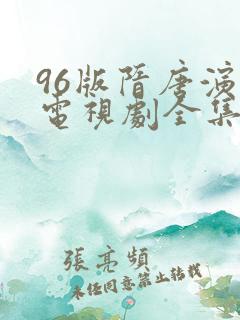 96版隋唐演
電視劇全集
張亮頻
未經同意禁止轉載